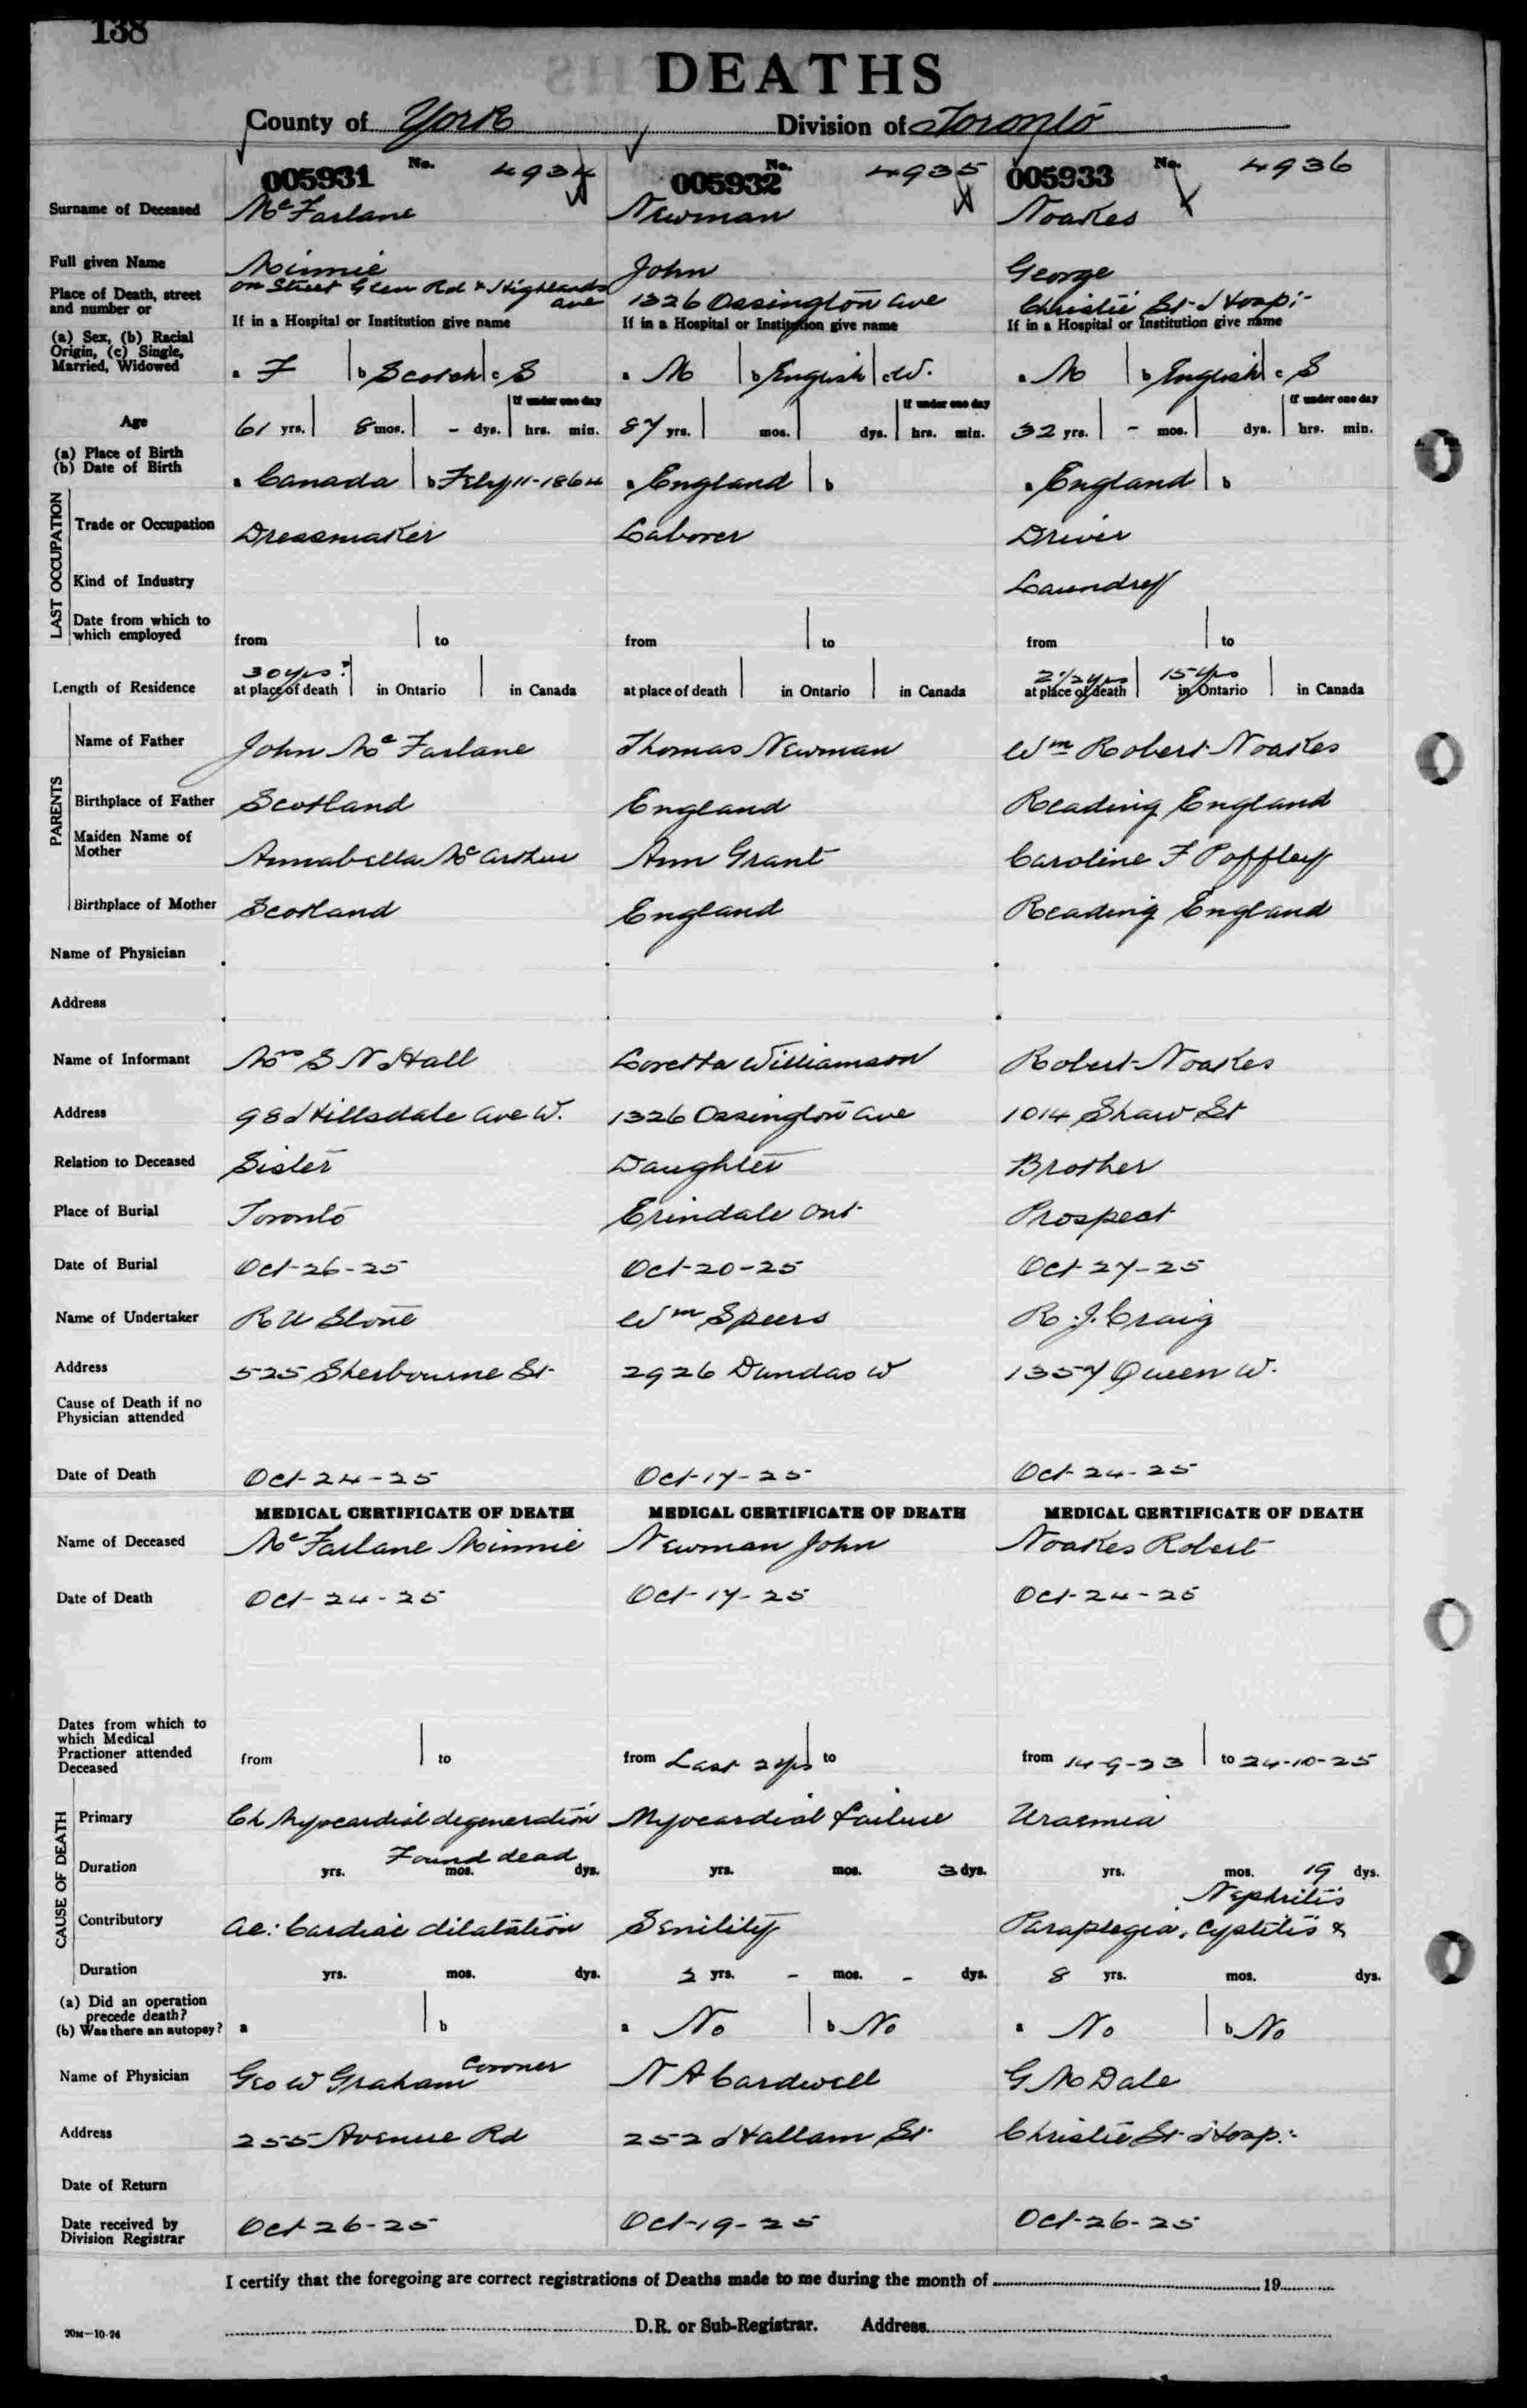 138
DEATHS
County of York Division of Toronto
005931 No. 4934 005932 No. 4935 005933 No. 4936
Surname of Deceased McFarlane Newman Noakes
Full given Name Minnie John George
Place of Death, street and number or on Street Glen Rd & Highlands ave 1326 Ossington ave Christie St Hosp:-
If in a Hospital or Institution give name If in a Hospital or Institution give name If in a Hospital or Institution give name
(a) Sex, (b) Racial Origin, (c) Single, Married, Widowed a F b Scotch c S a M b English c W. a M b English c S
If under one day If under one day If under one day
Age 61 yrs. 8 mos. - dys. hrs. min. 87 yrs. mos. dys. hrs. min. 32 yrs. - mos. dys. hrs. min.
(a) Place of Birth (b) Date of Birth a Canada b Feby 11-1864 a England b a England b
LAST OCCUPATION
Trade or Occupation Dressmaker Laborer Driver
Kind of Industry Laundry
Date from which to which employed from to from to from to
30 yrs? 2 1/2 yrs 15 yrs
Length of Residence at place of death in Ontario in Canada at place of death in Ontario in Canada at place of death in Ontario in Canada
PARENTS
Name of Father John McFarlane Thomas Newman Wm Robert Noakes
Birthplace of Father Scotland England Reading England
Maiden Name of Mother Annabella McArthur Ann Grant Caroline F Poffley
Birthplace of Mother Scotland England Reading England
Name of Physician
Address
Name of Informant Mrs S N Hall Loretta Williamson Robert Noakes
Address 98 Hillsdale Ave W. 1326 Ossington ave 1014 Shaw St
Relation to Deceased Sister Daughter Brother
Place of Burial Toronto Erindale Ont. Prospect
Date of Burial Oct-26-25 Oct-20-25 Oct-27-25
Name of Undertaker R U Stone Wm Speers R. J. Craig
Address 525 Sherbourne St- 2926 Dundas W 1357 Queen W.
Cause of Death if no Physician attended
Date of Death Oct-24-25 Oct-17-25 Oct-24-25
MEDICAL CERTIFICATE OF DEATH MEDICAL CERTIFICATE OF DEATH MEDICAL CERTIFICATE OF DEATH
Name of Deceased McFarlane Minnie Newman John Noakes Robert
Date of Death Oct-24-25 Oct-17-25 Oct-24-25
Dates from which to which Medical Practioner attended Deceased from to from Last 2 yrs to from 14-9-23 to 24-10-25
CAUSE OF DEATH
Primary Ch Myocardial degeneration Myocardial failure Uraemia
Duration yrs. Found dead mos. dys. yrs. mos. 3 dys. yrs. mos. 19 dys.
Nephritis
Contributory Ac: Cardiac dilatation Senility Paraplegia, Cystitis &
Duration yrs. mos. dys. 2 yrs. - mos. - dys. 8 yrs. mos. dys.
(a) Did an operation precede death? (b) Was there an autopsy? a b a No b No a No b No
Name of Physician Geo W Graham Coroner N A Cardwell G M Dale
Address 255 Avenue Rd 252 Hallam St. Christie St Hosp:-
Date of Return
Date received by Division Registrar Oct 26-25 Oct-19-25 Oct-26-25
I certify that the foregoing are correct registrations of Deaths made to me during the month of 19
20M-10-24 D.R. or Sub-Registrar. Address